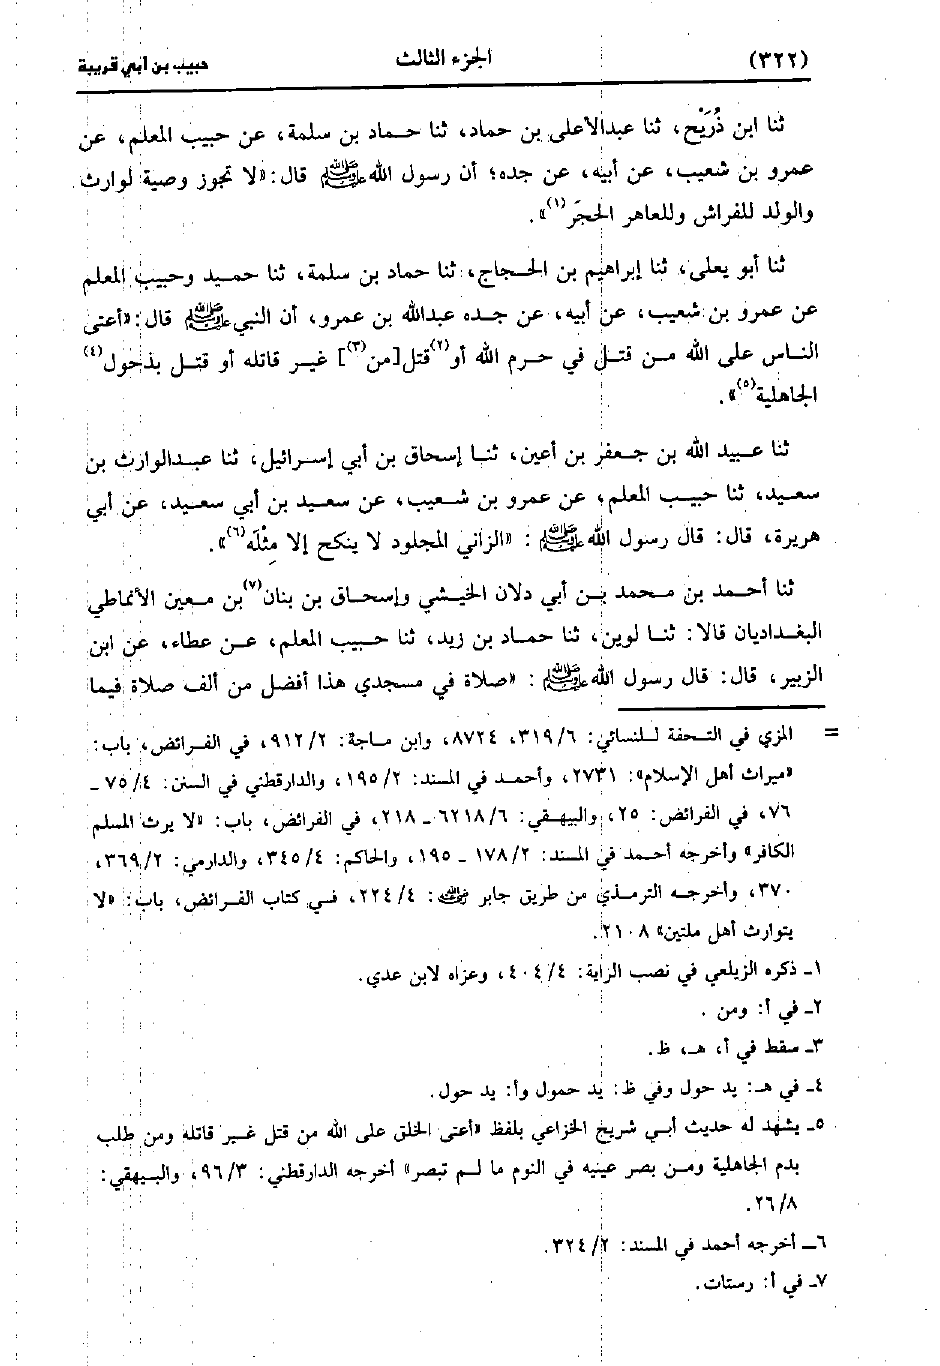 (٣٢٢) الجزء الثالث حبيب بن أبي قريبة
ثنا ابن ذُرَيْح، ثنا عبدالأعلى بن حماد، ثنا حماد بن سلمة، عن حبيب المعلم، عن
عمرو بن شعيب، عن أبيه، عن جده؛ أن رسول الله ﷺ قال: «لا تجوز وصية لوارث
والولد للفراش وللعاهر الحجَر(١)».
ثنا أبو يعلى، ثنا إبراهيم بن الحجاج، ثنا حماد بن سلمة، ثنا حميد وحبيب المعلم
عن عمرو بن شعيب، عن أبيه، عن جده عبدالله بن عمرو، أن النبي ﷺ قال: «أعتى
الناس على الله من قتل في حرم الله أو(٢) قتل [من(٣)] غير قاتله أو قتل بذحول(٤)
الجاهلية(٥)».
ثنا عبيد الله بن جعفر بن أعين، ثنا إسحاق بن أبي إسرائيل، ثنا عبدالوارث بن
سعيد، ثنا حبيب المعلم، عن عمرو بن شعيب، عن سعيد بن أبي سعيد، عن أبي
هريرة، قال: قال رسول الله ﷺ : «الزاني المجلود لا ينكح إلا مِثْلَه(٦)».
ثنا أحمد بن محمد بن أبي دلان الخيشي وإسحاق بن بنان(٧) بن معين الأنماطي
البغداديان قالا: ثنا لوين، ثنا حماد بن زيد، ثنا حبيب المعلم، عن عطاء، عن ابن
الزبير، قال: قال رسول الله ﷺ : «صلاة في مسجدي هذا أفضل من ألف صلاة فيما
= المزي في التحفة للنسائي: ٣١٩/٦، ٨٧٢٤، وابن ماجة: ٩١٢/٢، في الفرائض، باب:
«ميراث أهل الإسلام»: ٢٧٣١، وأحمد في المسند: ١٩٥/٢، والدارقطني في السنن: ٧٥/٤ -
٧٦، في الفرائض: ٢٥، والبيهقي: ٦٢١٨/٦ - ٢١٨، في الفرائض، باب: «لا يرث المسلم
الكافر» وأخرجه أحمد في المسند: ١٧٨/٢ - ١٩٥، والحاكم: ٣٤٥/٤، والدارمي: ٣٦٩/٢،
٣٧٠، وأخرجه الترمذي من طريق جابر رضي الله عنه: ٢٢٤/٤، في كتاب الفرائض، باب: «لا
يتوارث أهل ملتين» ٢١٠٨.
١ـ ذكره الزيلعي في نصب الراية: ٤٠٤/٤، وعزاه لابن عدي.
٢ـ في أ: ومن .
٣ـ سقط في أ، هـ، ظ.
٤ـ في هـ: يد حول وفي ظ: يد حمول وأ: يد حول.
٥ـ يشهد له حديث أبي شريح الخزاعي بلفظ «أعتى الخلق على الله من قتل غير قاتله ومن طلب
بدم الجاهلية ومن بصر عينيه في النوم ما لم تبصر» أخرجه الدارقطني: ٩٦/٣، والبيهقي:
٢٦/٨.
٦ـ أخرجه أحمد في المسند: ٣٢٤/٢.
٧ـ في أ: رستات.